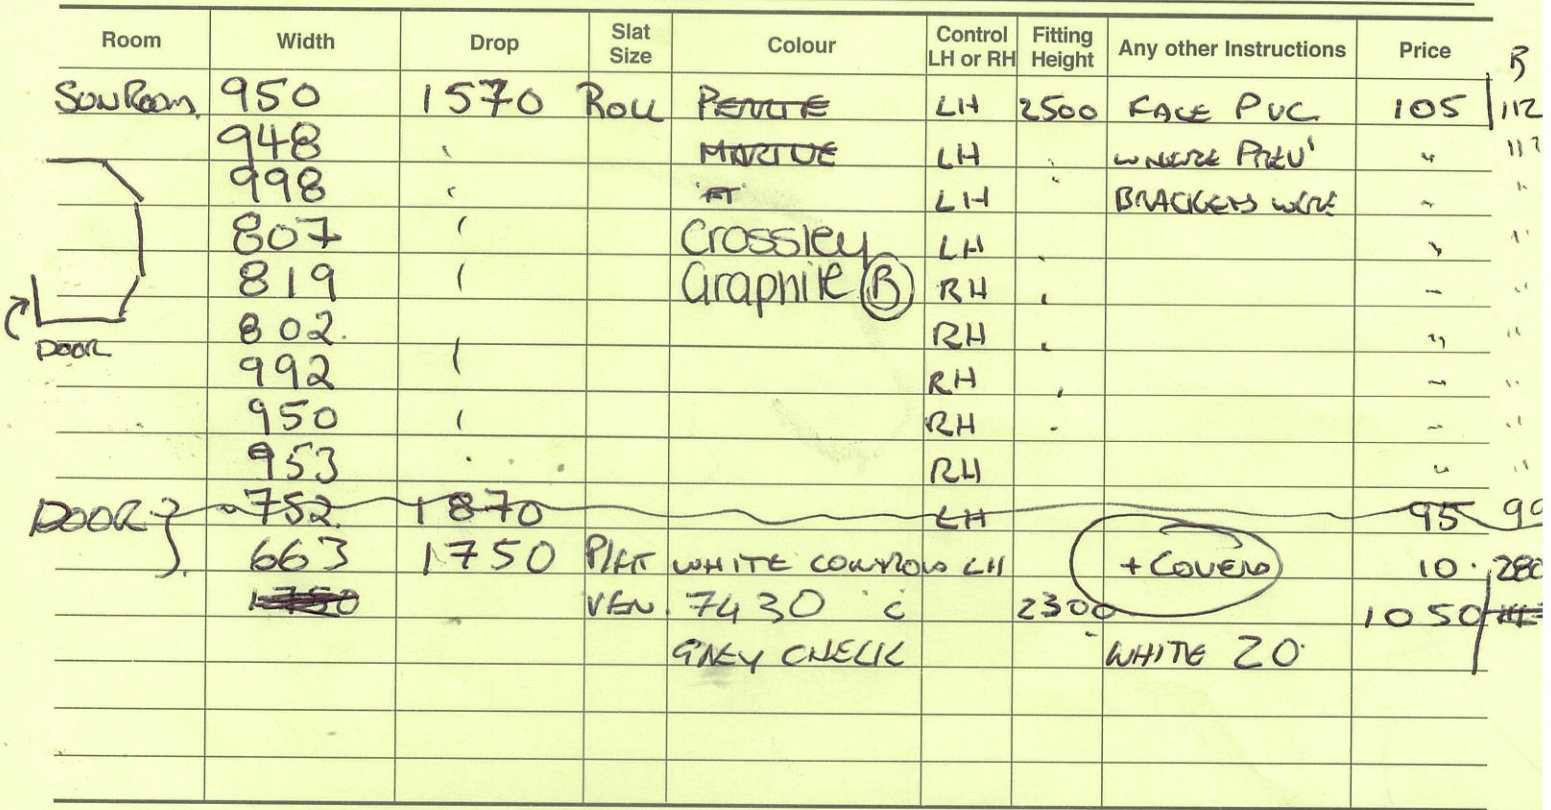 Room Width Drop Slat Size Colour Control LH or RH Fitting Height Any other Instructions Price B
SUNROOM. 950 1570 ROLL PERLITE LH 2500 FACE PVC 105 112
948 " LH " WHERE PREV' " 112
998 " LH " BRACKETS WERE " "
807 " Crossley LH " " "
819 " Graphite (B) RH " " "
802. RH " " "
992 " RH " " "
950 " RH " " "
953 " RH " "
DOOR
DOOR } 752. 1870 LH 95 99
663 1750 WHITE CONTROLS LH + COVERS 10. 280
1750 VEN. 7430 2300 1050
GREY CHECK WHITE 20.